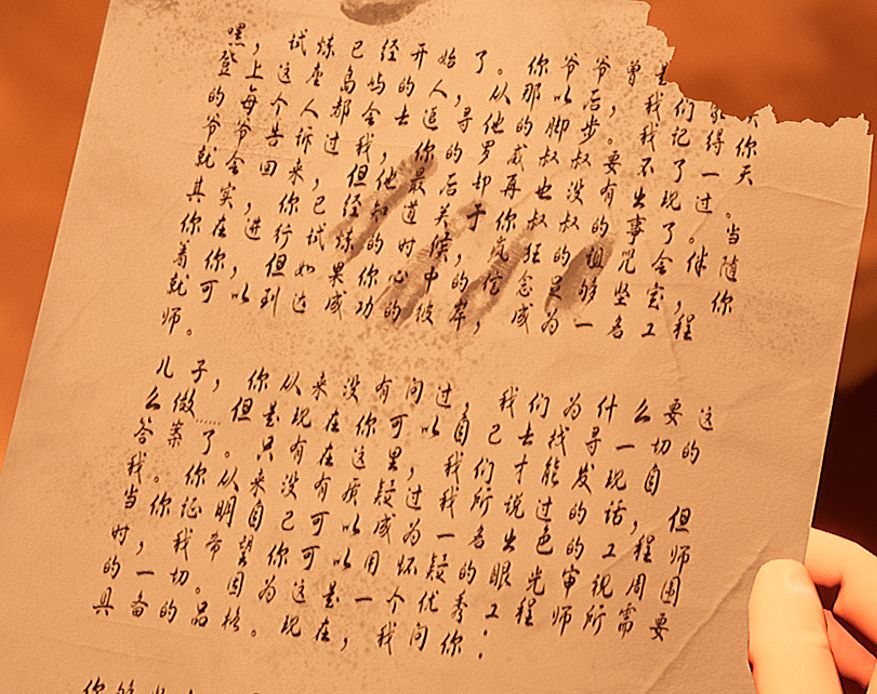 嘿，试炼已经开始了。你爷爷曾是
登上这座岛屿的人，从那以后，我们
的每个人都会去追寻他的脚步。我记得你
爷爷告诉过我，你的罗威叔叔要不了一天
就会回来，但他最后却再也没有出现过。
其实，你已经知道关于你叔叔的事了。当
你在进行试炼的时候，疯狂的诅咒会伴随
着你，但如果你心中的信念足够坚定，你
就可以到达成功的彼岸，成为一名工程
师。
儿子，你从来没有问过，我们为什么要这
么做……但是现在你可以自己去找寻一切的
答案了。只有在这里，我们才能发现自
我。你从来没有质疑过我所说过的话，但
当你证明自己可以成为一名出色的工程师
时，我希望你可以用怀疑的眼光审视周围
的一切。因为这是一个优秀工程师所需要
具备的品格。现在，我问你：